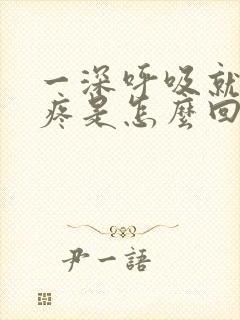 一深呼吸就
疼是怎麼回
尹一語